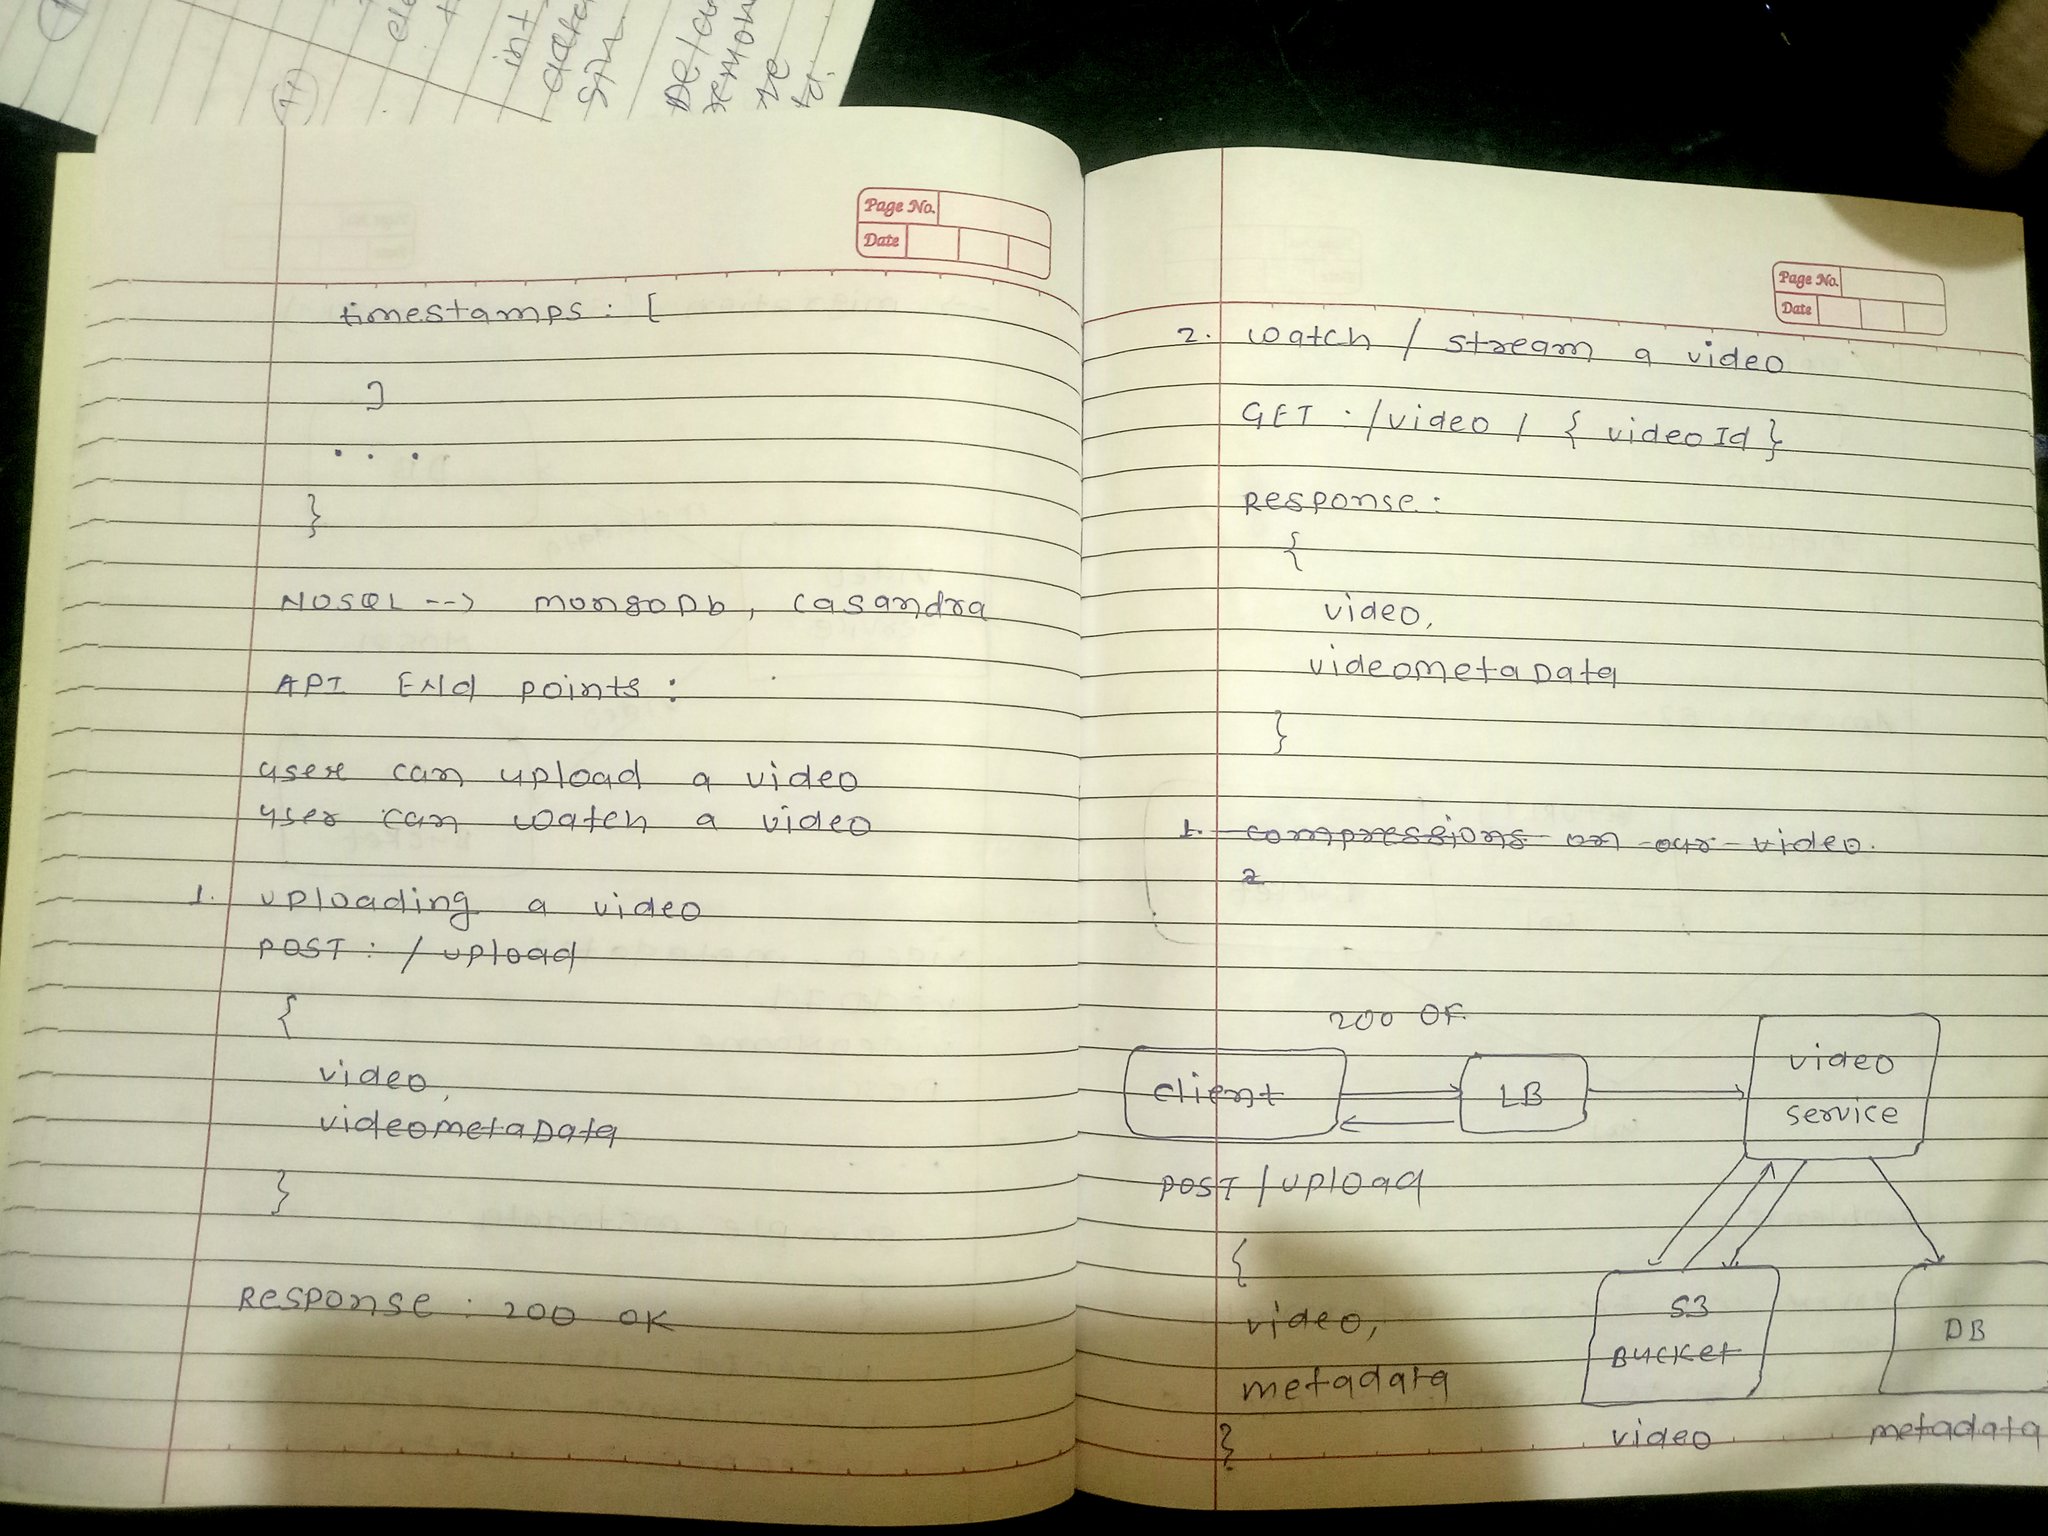 Page No.
Date
timestamps : [
]
. . .
}
NOSQL --> mongoDb, casandra
API End points :
user can upload a video
user can watch a video
1. uploading a video
POST : / upload
{
video,
videometaData
}
Response : 200 OK
Page No.
Date
2. watch / stream a video
GET : /video / { videoId }
Response :
{
video,
videometaData
}
1. compressions on our video.
2
200 OK
client
LB
video
service
POST / upload
{
video,
metadata
}
S3
Bucket
DB
video
metadata
int
Deta
remon